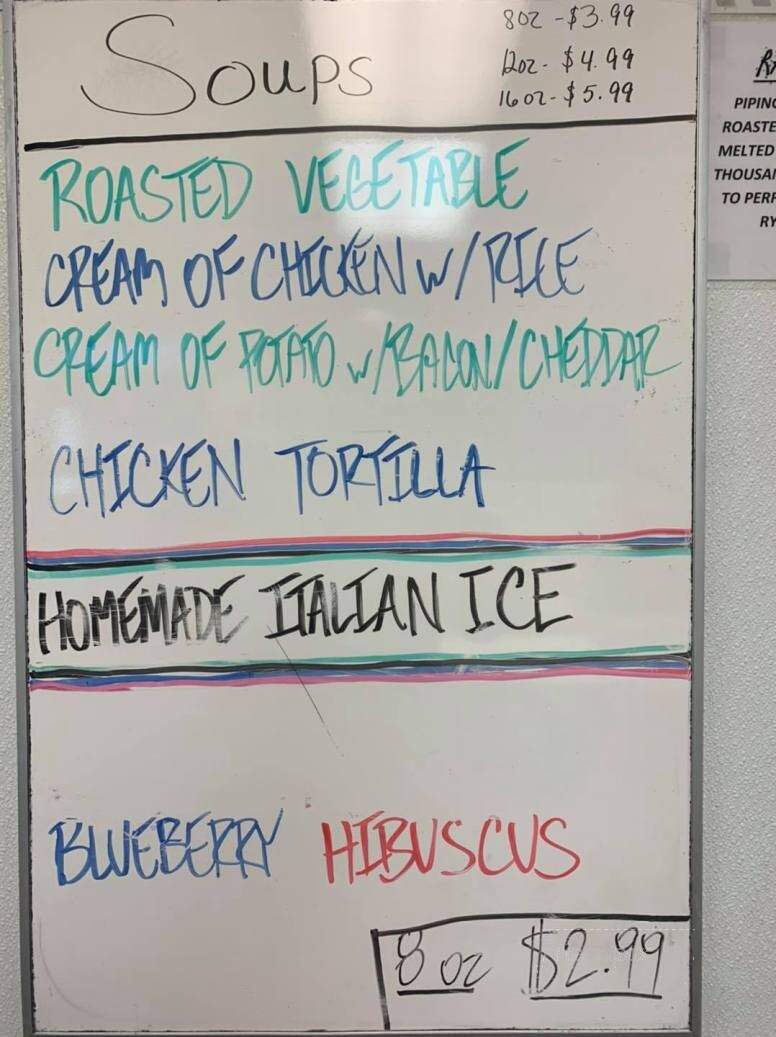 Soups
8oz - $3.99
12oz - $4.99
16oz - $5.99
ROASTED VEGETABLE
CREAM OF CHICKEN w/ RICE
CREAM OF POTATO w/BACON/CHEDDAR
CHICKEN TORTILLA
HOMEMADE ITALIAN ICE
BLUEBERRY HIBUSCUS
8 oz $2.99
PIPING
ROASTE
MELTED
THOUSA
TO PERF
RY